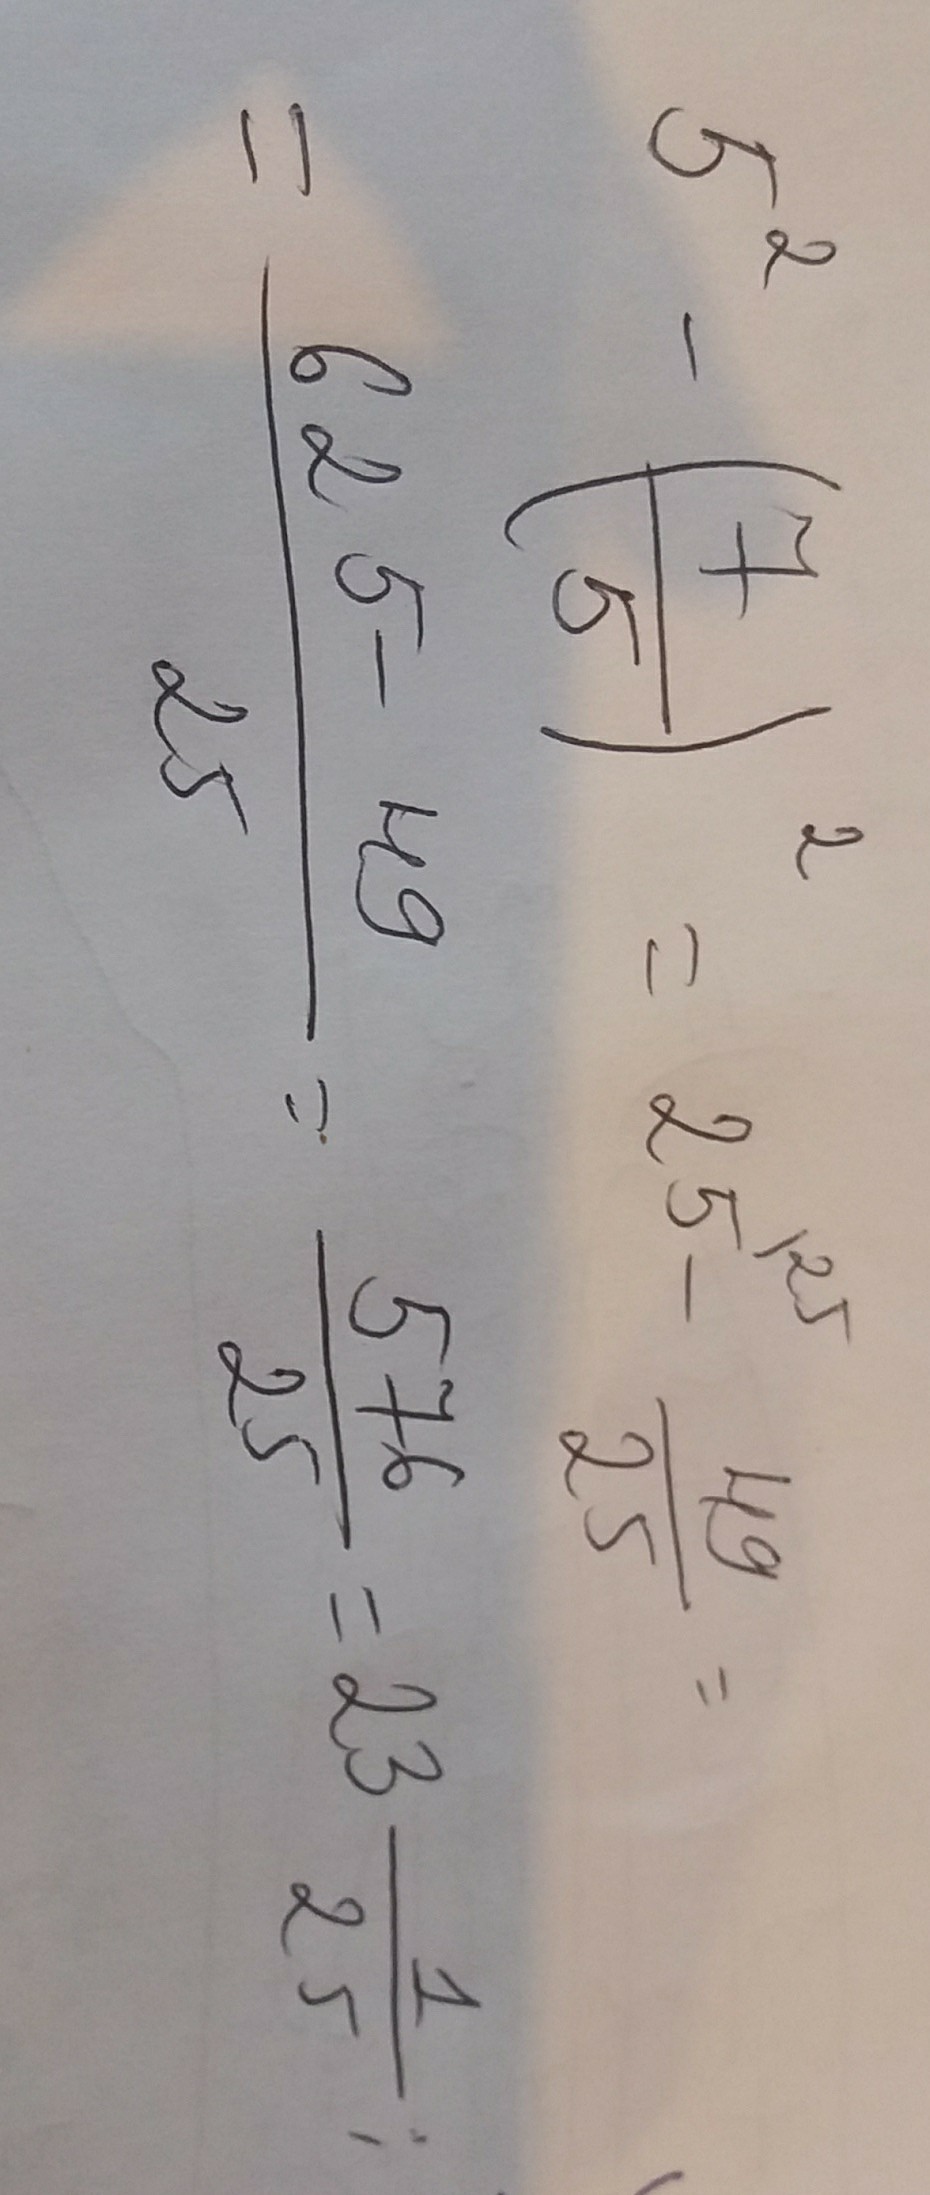 5² - (7/5)² = 25\25 - 49/25 =
= (625 - 49)/25 = 576/25 = 23 1/25;